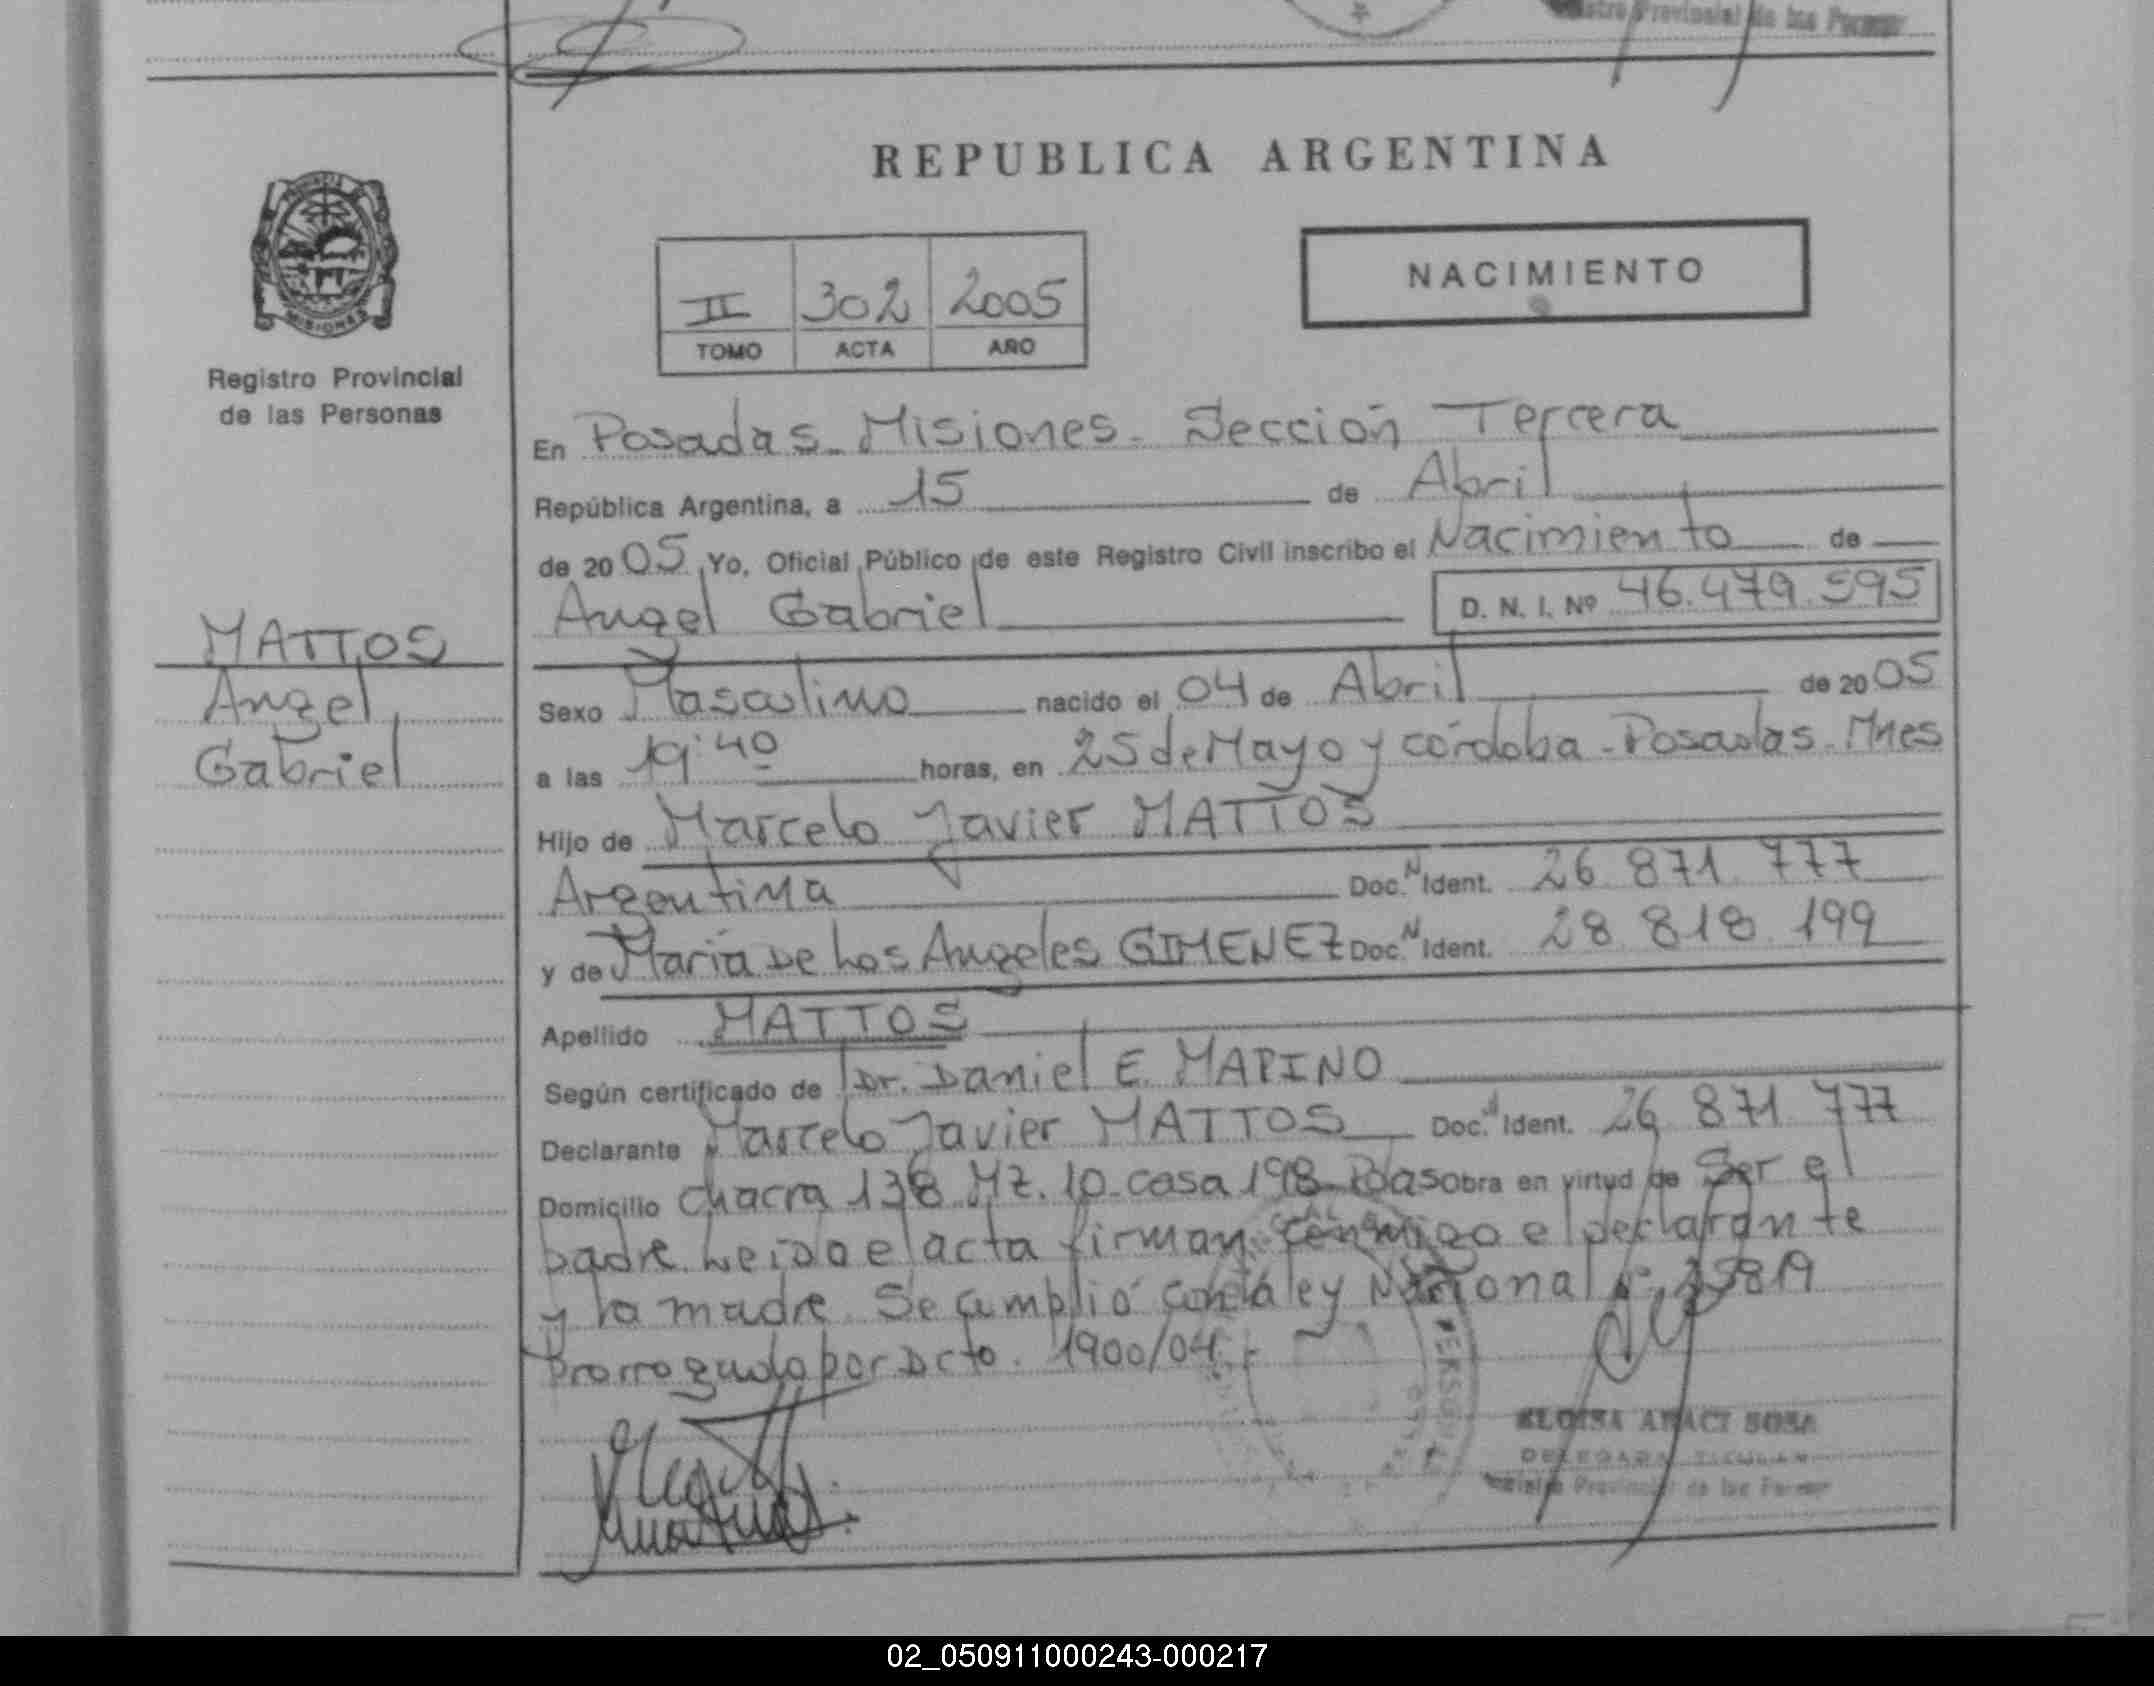 Provincial de las Person
REPUBLICA ARGENTINA
II 302 2005
TOMO ACTA AÑO
NACIMIENTO
PROVINCIA
MISIONES
Registro Provincial
de las Personas
En Posadas - Misiones - Sección Tercera
República Argentina, a 15 de Abril
de 2005 Yo, Oficial Público de este Registro Civil inscribo el Nacimiento de
Angel Gabriel D. N. I. Nº 46.479.595
MATTOS
Angel
Gabriel
Sexo Masculino nacido el 04 de Abril de 2005
a las 19:40 horas, en 25 de Mayo y córdoba - Posadas - Mnes
Hijo de Marcelo Javier MATTOS
Argentina Doc. N Ident. 26 871 777
y de María De Los Angeles GIMENEZ Doc. N Ident. 28 818 199
Apellido MATTOS
Según certificado de Dr. Daniel E. MARINO
Declarante Marcelo Javier MATTOS Doc. N Ident. 26 871 777
Domicilio chacra 138 Mz. 10 casa 198 - Pdas obra en virtud de Ser el
padre. Leida el acta firman conmigo el declarante
y la madre. Se cumplió con la ley Nacional Nº 25819
Prorrogado por Dcto. 1900/04.-
ELOISA ARACI SOSA
DELEGADA TITULAR
Provincial de las Person
02_050911000243-000217